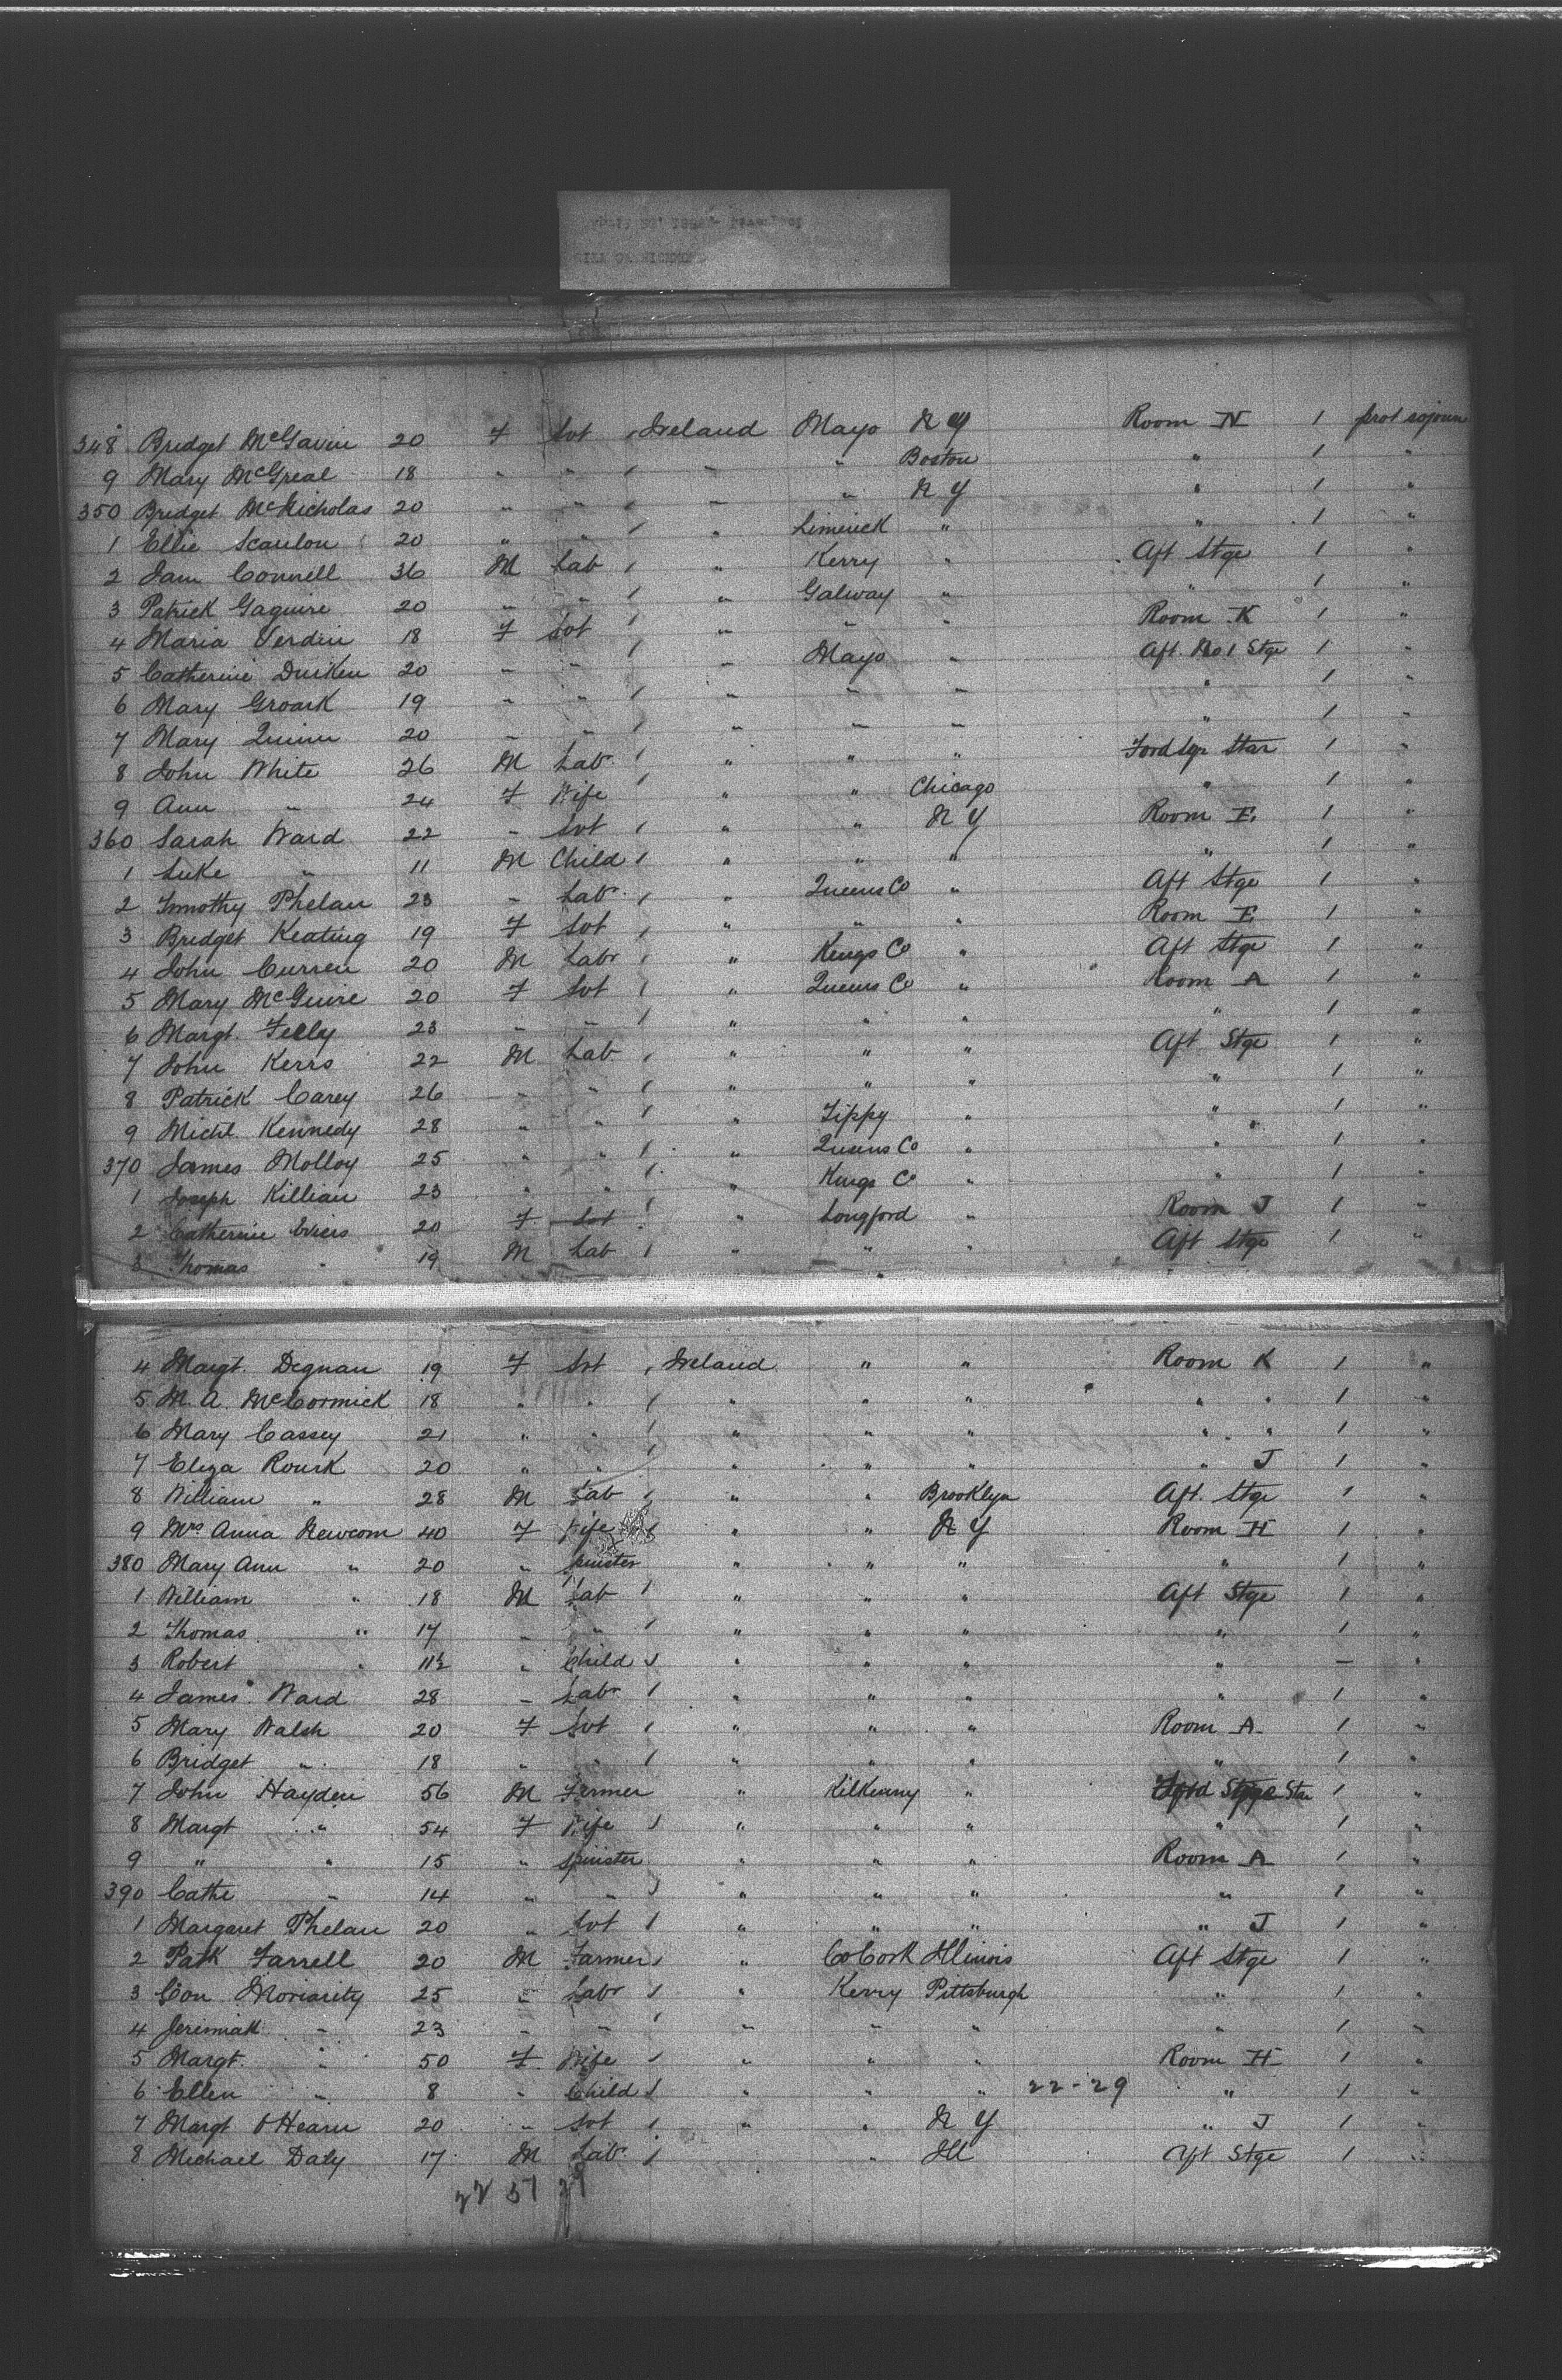 348 Bridget McGavin 20 F Svt / Ireland Mayo N Y Room N 1 prot sojourn
9 Mary McGreal 18 " " / " " Boston " 1 "
350 Bridget McNicholas 20 " " / " " N Y " 1 "
1 Ellie Scanlon 20 " " / " Limerick " " 1 "
2 Dam Connell 36 M Lab / " Kerry " Aft Stge 1 "
3 Patrick Gaguire 20 " " / " Galway " " 1 "
4 Maria Verdin 18 F Svt / " " " Room K 1 "
5 Catherine Durken 20 " " / " Mayo " Aft. No 1 Stge 1 "
6 Mary Groark 19 " " / " " " " 1 "
7 Mary Quinn 20 " " / " " " " 1 "
8 John White 26 M Lab / " " " Ford Stge Star 1 "
9 Ann " 24 F Wife / " " Chicago " 1 "
360 Sarah Ward 22 " Svt / " " N Y Room E 1 "
1 Luke " 11 M Child / " " " " 1 "
2 Timothy Phelan 23 " Lab / " Queens Co " Aft Stge 1 "
3 Bridget Keating 19 F Svt / " " " Room E 1 "
4 John Curren 20 M Labr / " Kings Co " Aft Stge 1 "
5 Mary McGuire 20 F Svt / " Queens Co " Room A 1 "
6 Margt. Felly 23 " " / " " " " 1 "
7 John Kerrs 22 M Lab / " " " Aft Stge 1 "
8 Patrick Carey 26 " " / " " " " 1 "
9 Michl. Kennedy 28 " " / " Tippy " " 1 "
370 James Molloy 25 " " / " Queens Co " " 1 "
1 Joseph Killian 23 " " / " Kings Co " " 1 "
2 Catherine Eviers 20 F Svt / " Longford " Room J 1 "
3 Thomas " 19 M Lab / " " " Aft Stge 1 "
4 Margt. Degnan 19 F Svt / Ireland " " Room K 1 "
5 M. A. McCormick 18 " " / " " " " " 1 "
6 Mary Cassey 21 " " / " " " " " 1 "
7 Eliza Rourk 20 " " / " " " " J 1 "
8 William " 28 M Lab / " " Brooklyn Aft. Stge 1 "
9 Mrs Anna Newcom 40 F Wife / " " N Y Room H 1 "
380 Mary Ann " 20 " Spinster " " " " 1 "
1 William " 18 M Lab / " " " Aft Stge 1 "
2 Thomas " 17 " " / " " " " 1 "
3 Robert " 11½ " Child / " " " " - "
4 James Ward 28 " Labr / " " " " 1 "
5 Mary Walsh 20 F Svt / " " " Room A 1 "
6 Bridget " 18 " " / " " " " 1 "
7 John Hayden 56 M Farmer " Kilkenny " Ford Stge Star 1 "
8 Margt " 54 F Wife / " " " " 1 "
9 " " 15 " Spinster " " " Room A 1 "
390 Cathe " 14 " " / " " " " 1 "
1 Margaret Phelan 20 " Svt / " " " " J 1 "
2 Patk Farrell 20 M Farmer / " Co Cork Illinois Aft Stge 1 "
3 Con Moriarity 25 " Labr / " Kerry Pittsburgh " 1 "
4 Jeremiah " 23 " " / " " " " 1 "
5 Margt. " 50 F Wife / " " " Room H 1 "
6 Ellen " 8 " Child / " " " 22-29 " 1 "
7 Margt O'Hearn 20 " Svt / " " N Y " J 1 "
8 Michael Daly 17 M Lab / " Ill Aft Stge 1 "
22 51 29